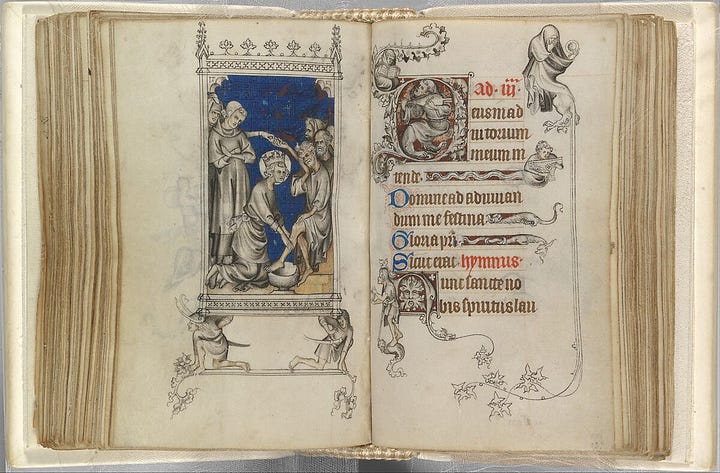 Ad. iij.
Deus in ad
iutorium
meum in
tende.
Domine ad adiuuan
dum me festina.
Gloria pri
Sicut erat. hymnus.
Nunc sancte no
bis spiritus lau